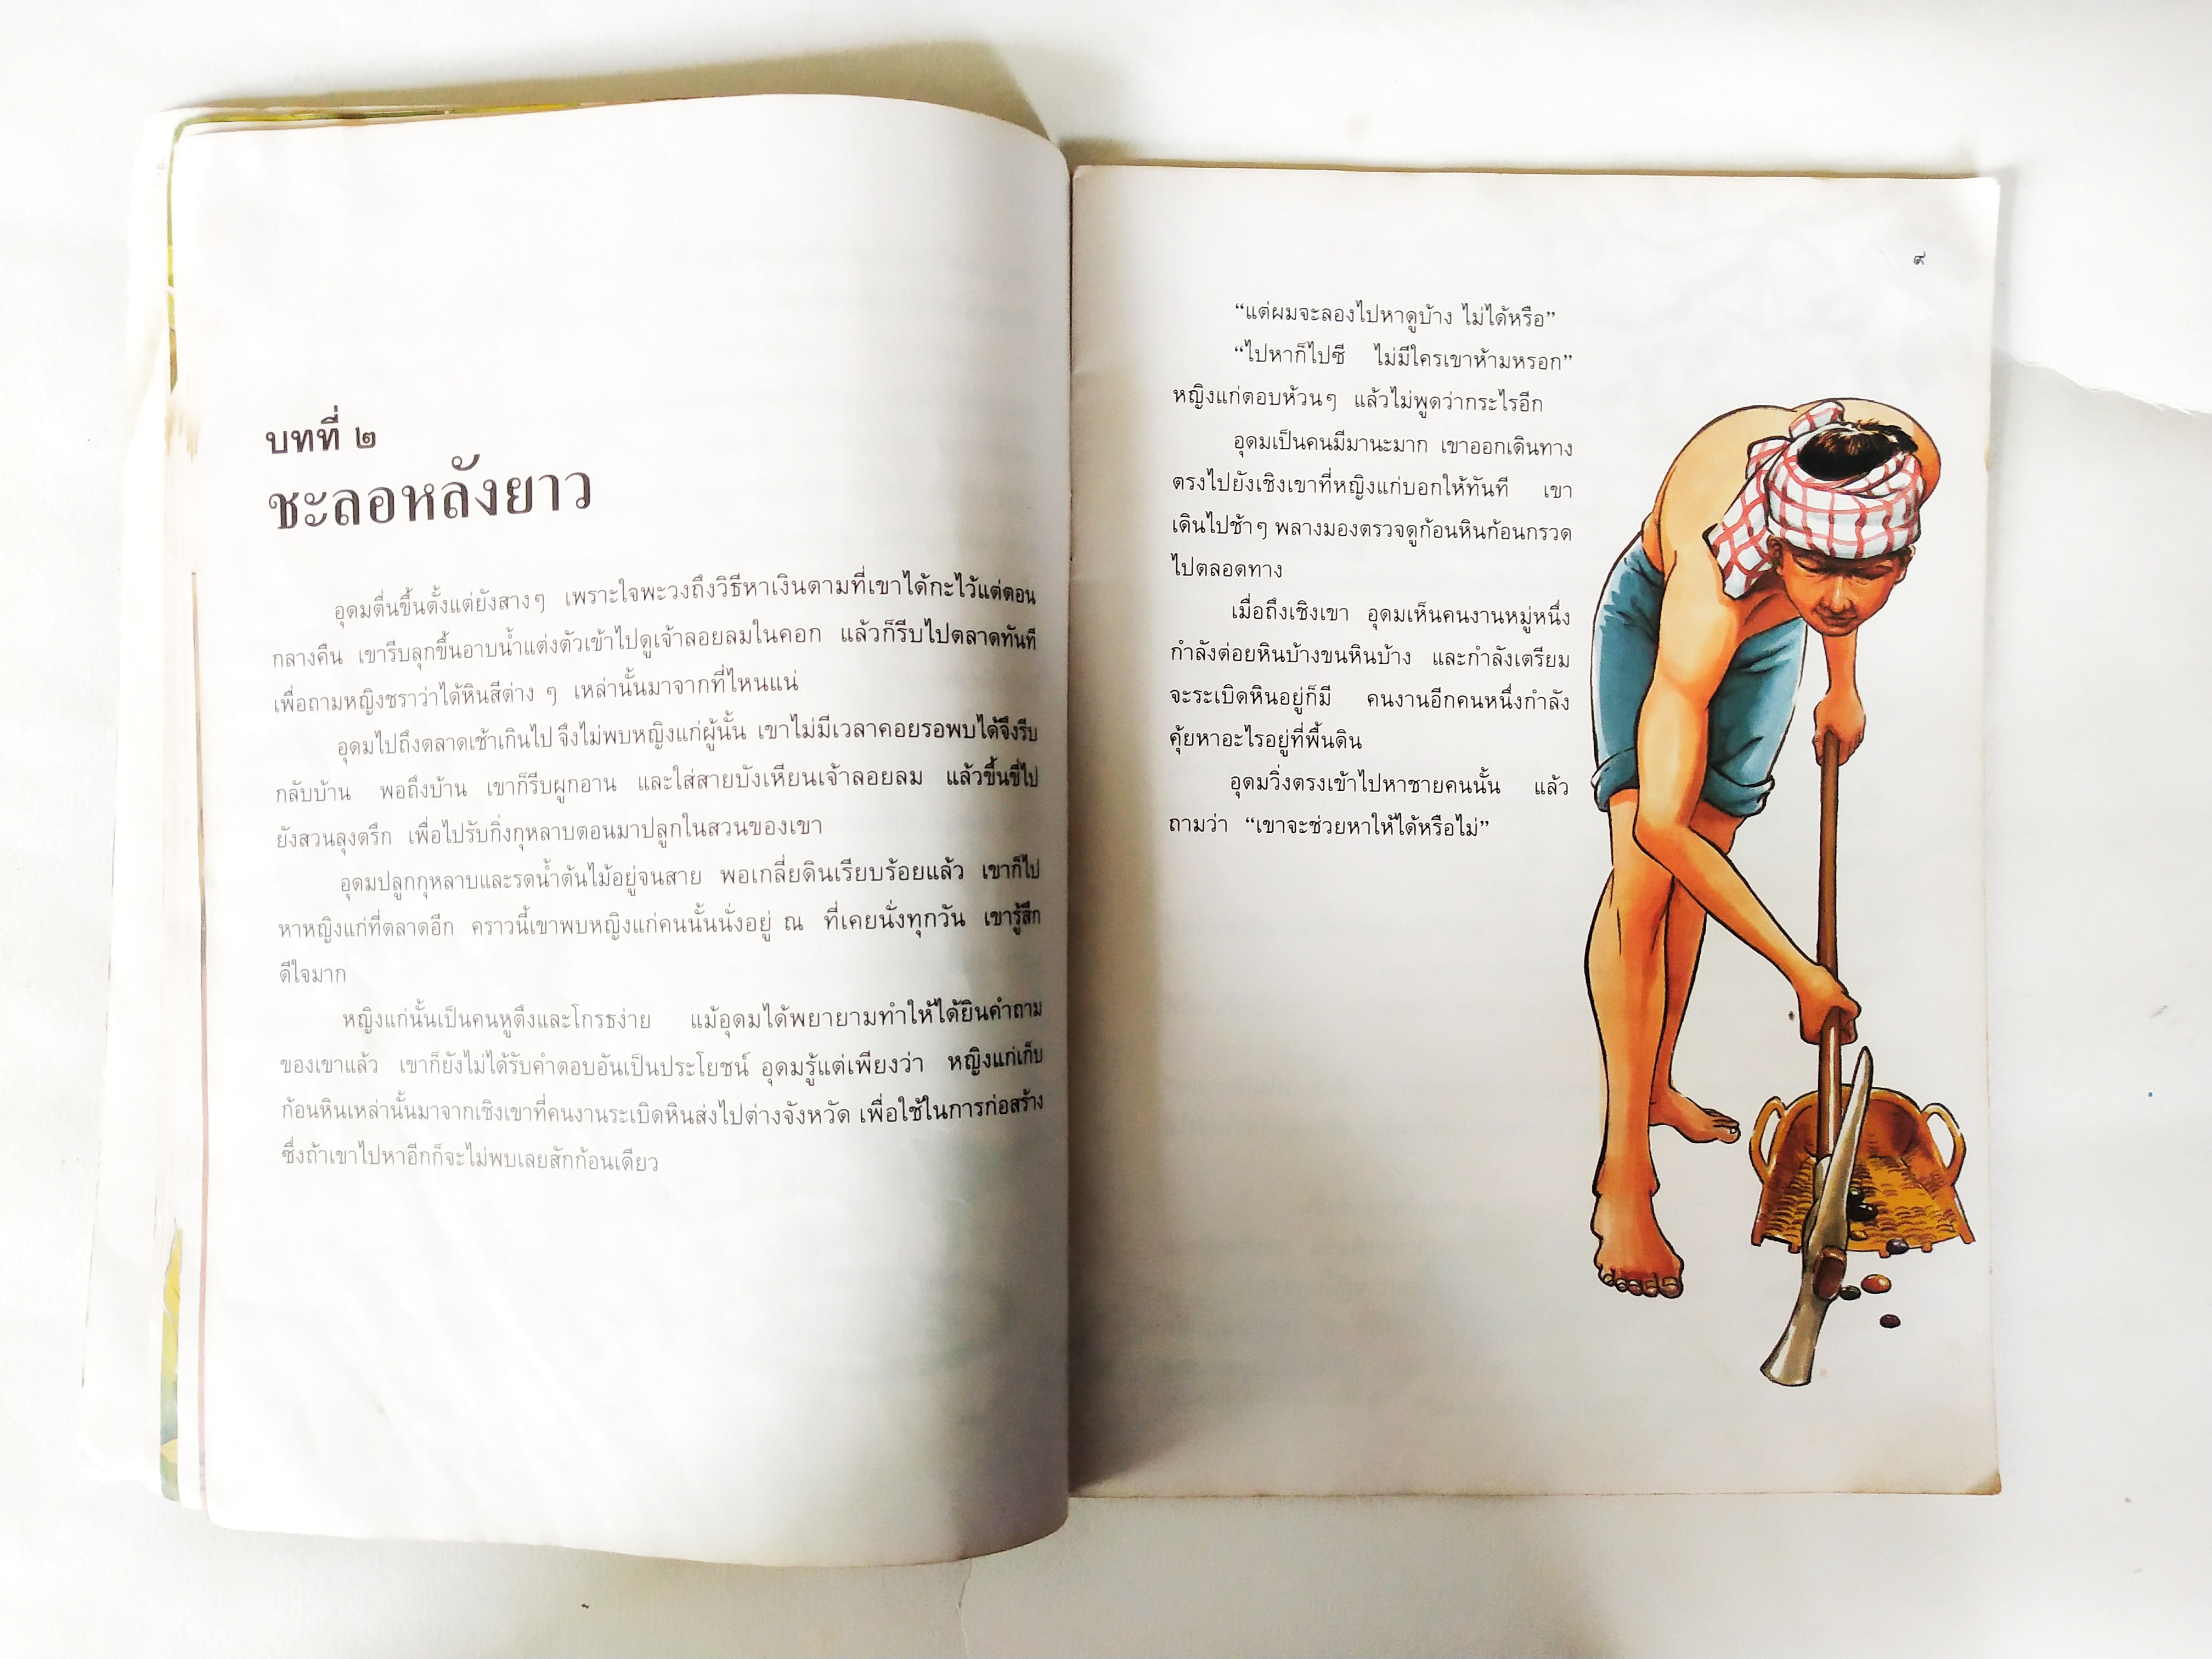 บทที่ ๒
ชะลอหลังยาว
อุดมตื่นขึ้นตั้งแต่ยังสางๆ เพราะใจพะวงถึงวิธีหาเงินตามที่เขาได้กะไว้แต่ตอน
กลางคืน เขารีบลุกขึ้นอาบน้ำแต่งตัวเข้าไปดูเจ้าลอยลมในคอก แล้วก็รีบไปตลาดทันที
เพื่อถามหญิงชราว่าได้หินสีต่าง ๆ เหล่านั้นมาจากที่ไหนแน่
อุดมไปถึงตลาดเช้าเกินไป จึงไม่พบหญิงแก่ผู้นั้น เขาไม่มีเวลาคอยรอพบได้จึงรีบ
กลับบ้าน พอถึงบ้าน เขาก็รีบผูกอาน และใส่สายบังเหียนเจ้าลอยลม แล้วขึ้นขี่ไป
ยังสวนลุงตรึก เพื่อไปรับกิ่งกุหลาบตอนมาปลูกในสวนของเขา
อุดมปลูกกุหลาบและรดน้ำต้นไม้อยู่จนสาย พอเกลี่ยดินเรียบร้อยแล้ว เขาก็ไป
หาหญิงแก่ที่ตลาดอีก คราวนี้เขาพบหญิงแก่คนนั้นนั่งอยู่ ณ ที่เคยนั่งทุกวัน เขารู้สึก
ดีใจมาก
หญิงแก่นั้นเป็นคนหูตึงและโกรธง่าย แม้อุดมได้พยายามทำให้ได้ยินคำถาม
ของเขาแล้ว เขาก็ยังไม่ได้รับคำตอบอันเป็นประโยชน์ อุดมรู้แต่เพียงว่า หญิงแก่เก็บ
ก้อนหินเหล่านั้นมาจากเชิงเขาที่คนงานระเบิดหินส่งไปต่างจังหวัด เพื่อใช้ในการก่อสร้าง
ซึ่งถ้าเขาไปหาอีกก็จะไม่พบเลยสักก้อนเดียว
๙
“แต่ผมจะลองไปหาดูบ้าง ไม่ได้หรือ”
“ไปหาก็ไปซี ไม่มีใครเขาห้ามหรอก”
หญิงแก่ตอบห้วนๆ แล้วไม่พูดว่ากระไรอีก
อุดมเป็นคนมีมานะมาก เขาออกเดินทาง
ตรงไปยังเชิงเขาที่หญิงแก่บอกให้ทันที เขา
เดินไปช้าๆ พลางมองตรวจดูก้อนหินก้อนกรวด
ไปตลอดทาง
เมื่อถึงเชิงเขา อุดมเห็นคนงานหมู่หนึ่ง
กำลังต่อยหินบ้างขนหินบ้าง และกำลังเตรียม
จะระเบิดหินอยู่ก็มี คนงานอีกคนหนึ่งกำลัง
คุ้ยหาอะไรอยู่ที่พื้นดิน
อุดมวิ่งตรงเข้าไปหาชายคนนั้น แล้ว
ถามว่า “เขาจะช่วยหาให้ได้หรือไม่”